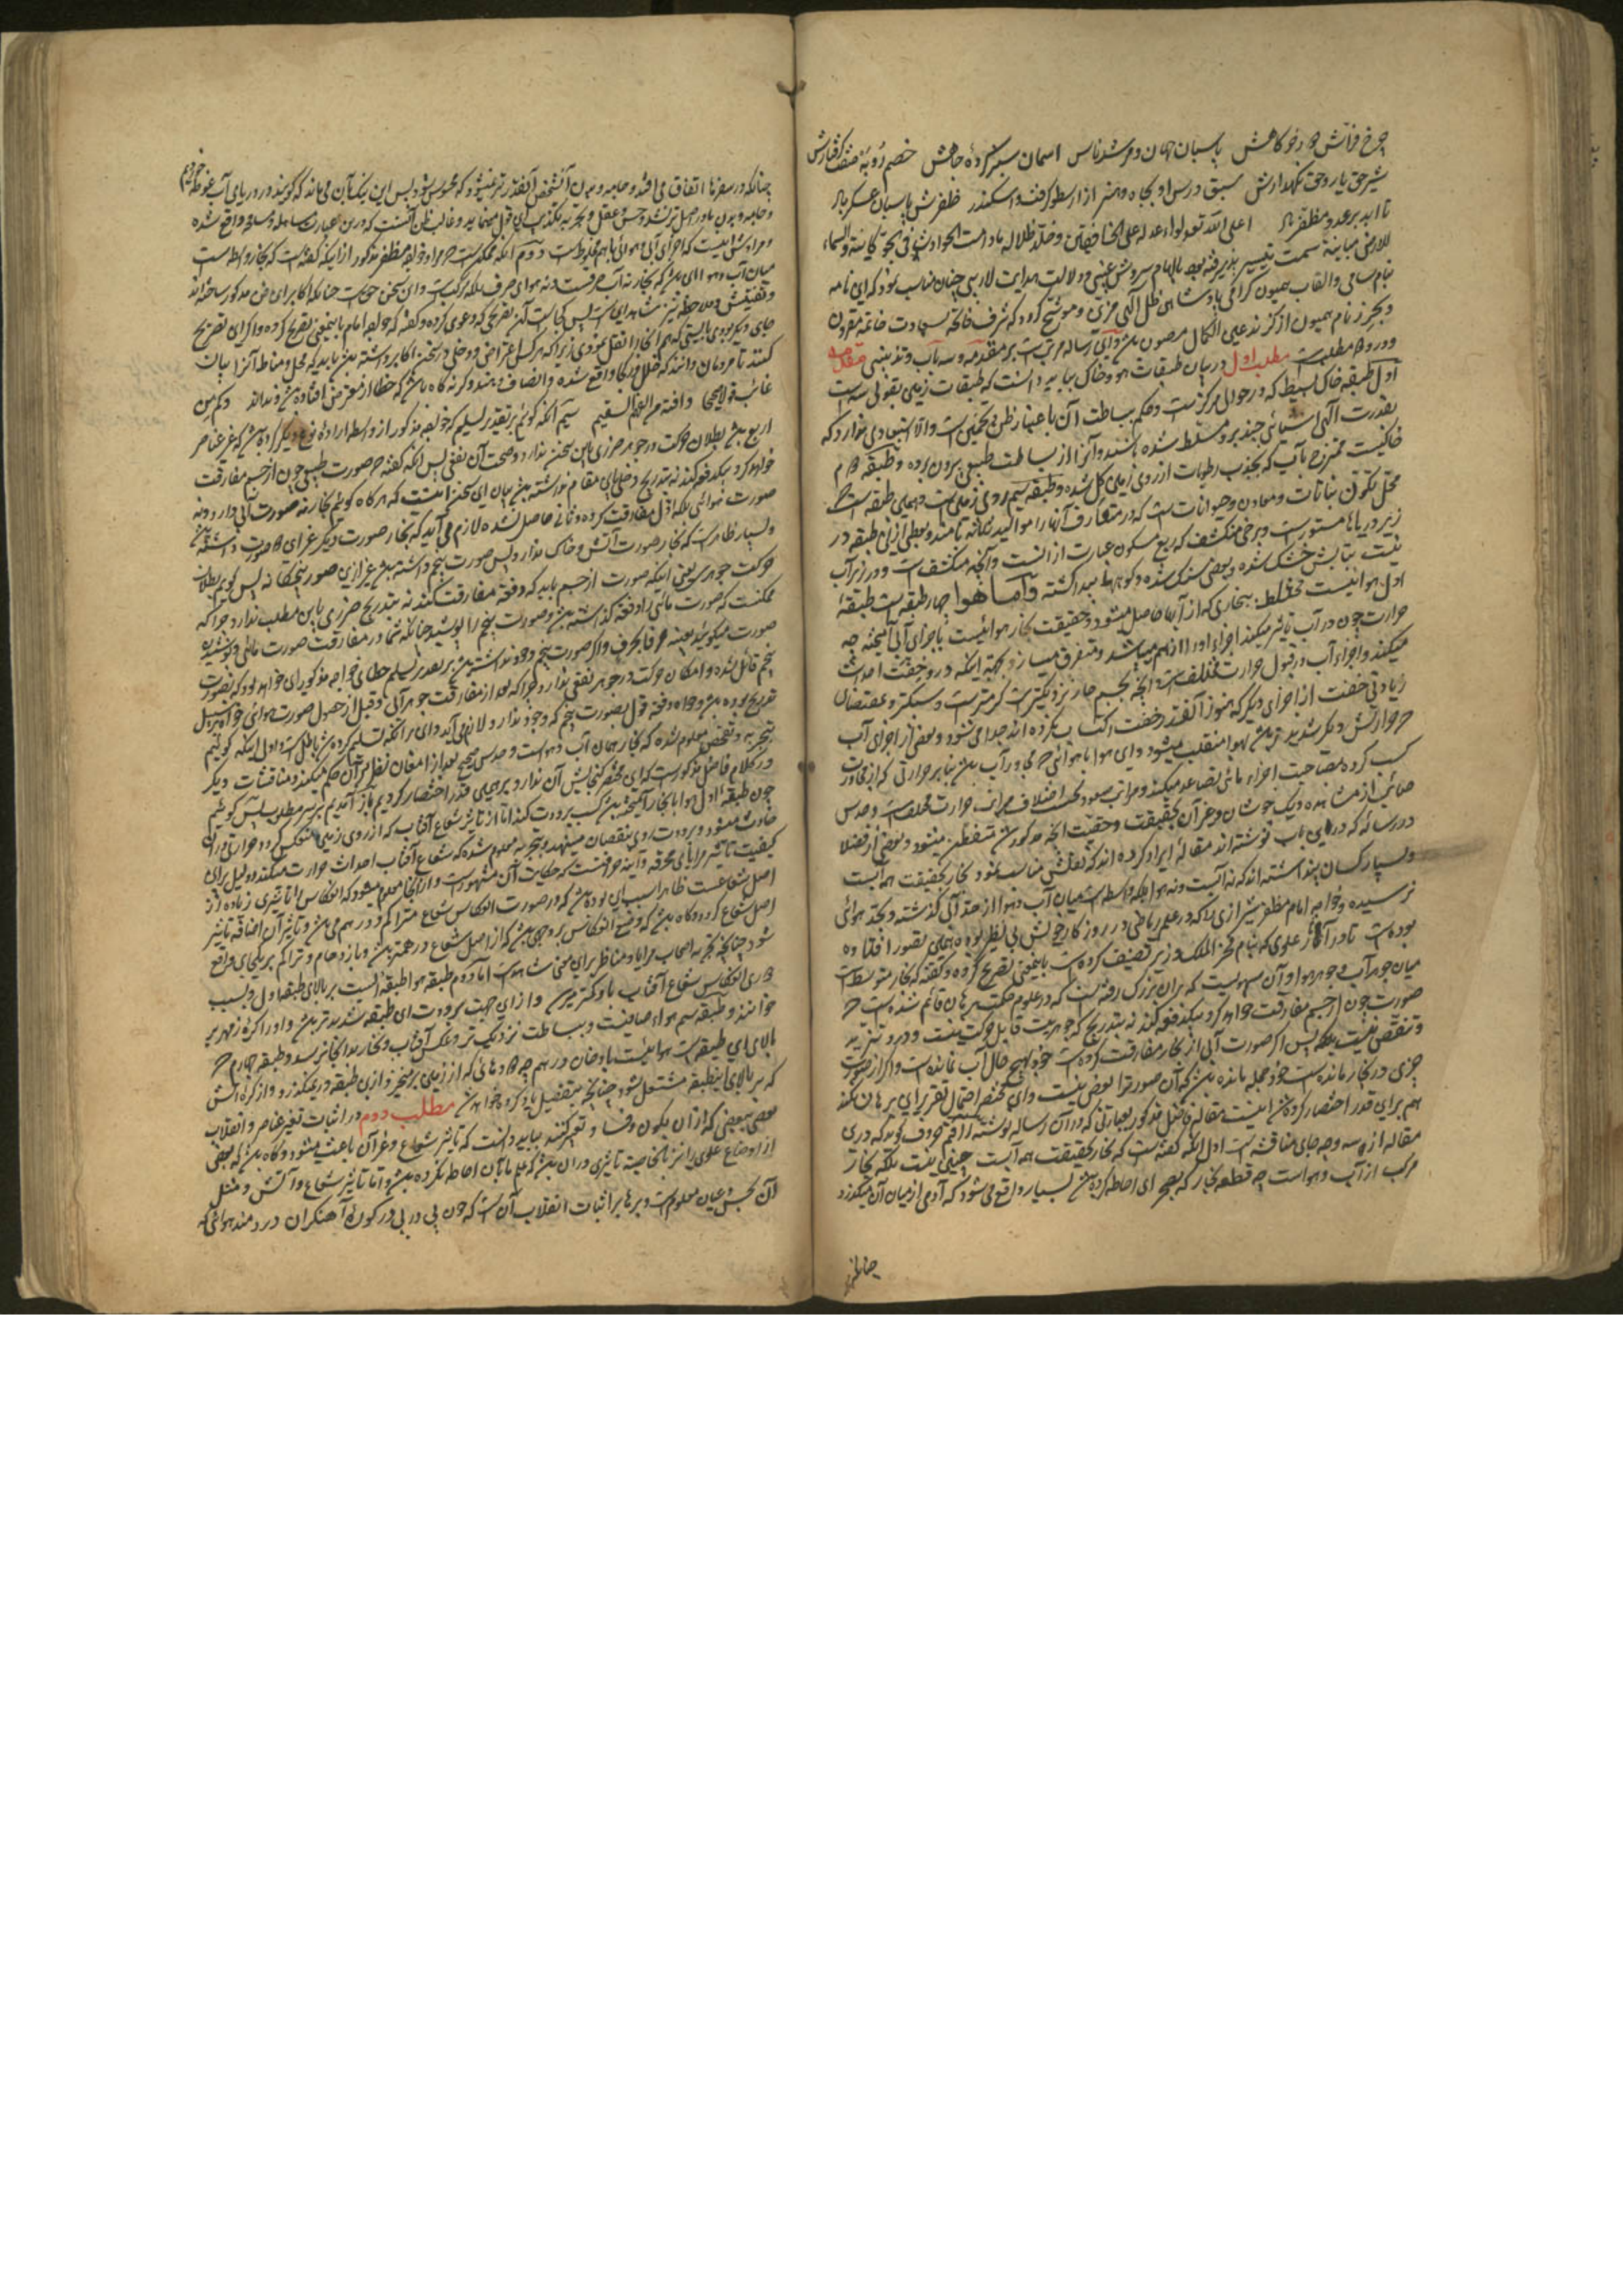 چرخ فراش در خرگاهش پاسبان جهان و مرشد ناس آسمان سبز کرده جاهش خصم روبه صفت گرفتارش
شیر حق یار و حق نگهدارش سبق درس او بجاه و هنر از ارسطو گرفت و اسکندر ظفرش پاسبان عسکر باد
تا ابد بر عدو مظفر باد اعلی الله تعالی لواء عدله علی الخافقین و خلد ظلاله مادامت الحوادث فی الجو کاینة والسماء
للارض مباینة سمت تیسیر پذیرفته بود بالهام سروش غیبی و دلالت هدایت لاریبی چنان مناسب نمود که این نامه
بنام سامی و القاب همیون گرامی پادشاهی ظل الهی مزین و موشح گردد که شرف فاتحه بسعادت خاتمه مقرون
و بحرز نام همیون از گزند عین الکمال مصون باشد و این رساله مرتبست بر مقدمه و سه باب و تذنیبی مقدمه
و درو دو مطلبست مطلب اول در بیان طبقات هوا و خاک بباید دانست که طبقات زمین بقولی سه است
اول طبقه خاک بسیط که در حوالی مرکزست و حکم بساطت آن باعتبار ظن و تخمین است والا استبعادی ندارد که
بقدرت الهی اشیائی چند برو مسلط شده باشند و آنرا از بساطت طبیعی برون برده و طبقه دوم
خاکیست ممتزج بآب که بجذب رطوبات از روی زمین گل شده و طبقه سیم روی زمین است و همین طبقه است که
محل تکون نباتات و معادن و حیوانات است که در متعارف آنها را موالید ثلاثه نامند و بعضی از این طبقه در
زیر دریاها مستورست و برخی منکشف که ربع مسکون عبارت از آنست و آنچه منکشف است و در زیر آب
نیست بتابش خشک شده و بعضی سنگ شده و کوهها پیدا گشته و اما هوا چهار طبقه است طبقه
اول هوائیست مختلط ببخاری که از آبها حاصل میشود و حقیقت بخار هوائیست باجزای آبی آمیخته چه
حرارت چون در آب تاثیر میکند اجزاء او را از هم میپاشد و متفرق میسازد بجهة اینکه درو خفت احداث
میکند و اجزاء آب در قبول حرارت مختلف است و آنچه بجسم حار نزدیکترست گرمترست و سبکتر و بمقتضای
زیادتی خفت از اجزای دیگر که هنوز آنقدر خفت اکتساب نکرده اند جدا می شود و بعضی از اجزای آب
که حرارتش دیگر شدیدتر باشد بهوا منقلب میشود و این هوا با هوائی که مجاور آب باشد بنا بر حرارتی که از مجاورت
کسب کرده بمصاحبت اجزاء مائی تصاعد میکند و مراتب صعود بحسب اختلاف مراتب حرارت مختلف است و حدس
صائب از مشاهده دیگ جوشان و غر آن بحقیقت و حقیقت آنچه مذکور شد متفطن میشود و بعضی از فضلا
در رسائل که در این باب نوشته اند مقاله ایراد کرده اند که نقلش مناسب نمود بخار بحقیقت همه آبست
و بسیار کسان پنداشته اند که نه آبست و نه هوا بلکه واسطه است میان آب و هوا از حد آبی گذشته و بحد هوائی
نرسیده و خواجه امام مظفر شیرازی را که در علم ریاضی در روزگار خویش بی نظیر بوده همین تصور افتاده
بوده است تا در آثار علوی که بنام فخر الملک وزیر تصنیف کرده است باینمعنی تصریح کرده و گفته که بخار متوسط است
میان جوهر آب و جوهر هوا و آن سهویست که بران بزرگ رفته است که در علوم حکمت برهان قائم شده است که
صورت چون از جسم مفارقت خواهد کرد بیکدفعه کند نه بتدریج که جوهریت قابل حرکت نیست و درو تزید
و تنقص نیست بلکه پس اگر صورت آبی از بخار مفارقت کرده است خود هیچ حال آب نمانده است و اگر از صورت
چیزی در بخار مانده است خود جمله مانده باشد که آن صورت را بعض نیست و این مختصر احتمال تقریر این برهان نکند
هم برین قدر اختصار کرده شد اینست مقاله فاضل مذکور بعبارتی که در آن رساله نوشته و راقم حروف گوید که درین
مقاله از سه وجه جای مناقشه است اول آنکه گفته است که بخار بحقیقت همه آبست چنین نیست بلکه بخار
مرکب از آب و هواست چه قطعه بخار که بصحرای احاطه کرده باشد بسیار واقع می شود که آدمی از میان آن میگذرد
چنانکه
چنانکه در سفرها اتفاق می افتد و جامه و بدن آنشخص آنقدر تر نمیشود که محسوس شود پس این بدان می ماند که گویند در دریای آب غوطه خوردم
و جامه و بدن ما در اصل تر نشد و حس و عقل و تجربه تکذیب این قول مینماید و غالب ظن آنست که درین عبارت مساهله و مسامحه واقع شده
و مرادش اینست که اجزای آبی و هوائی با هم مخلوطست دوم آنکه ممکنست که مراد خواجه مظفر مذکور از اینکه گفته است که بخار واسطه است
میان آب و هوا این باشد که بخار نه آب صرفست و نه هوای صرف بلکه مرکبست و این سخن حق است چنانکه اکابر این فن مذکور ساخته اند
و تفتیش و ملاحظه نیز شاهد این است پس کجاست آنکه تصریحی که دعوی کرده و گفته که خواجه امام باینمعنی تصریح کرده و اگر این تصریح
جای دیگر بودی بایستی که همانجا را نقل نمودی زیرا که هر کس اعتراض و دخلی در سخن اکابر داشته باشد باید که محل و مناط آنرا بیان
کنند تا مردمان دانند که خلل در کجا واقع شده و انصاف دهند و گرنه گاه باشد که خطا از معترض افتاده باشد و نداند و کم من
عائب قولا صحیحا و آفته من الفهم السقیم سیم آنکه گوئیم بر تقدیر تسلیم که خواجه مذکور از واسطه اراده نوع دیگر کرده باشد که غیر عناصر
اربع باشد بطلان حرکت در جوهر ضرری باین سخن ندارد و صحت آن نفعی پس آنکه گفته که صورت طبیعی چون از جسم مفارقت
خواهد کرد بیکدفعه کند نه بتدریج دخلی باین مقام نداشته باشد بیان این سخن اینست که هرگاه گوئیم بخار نه صورت آبی دارد و نه
صورت هوائی بلکه اول مفارقت کرده و ثانی حاصل نشده لازم می آید که بخار صورت دیگر غیر این دو صورت داشته باشد
و بسیار ظاهرست که بخار صورت آتش و خاک ندارد پس صورت پنجم داشته باشد غیر از این صور پنجگانه پس گوئیم بطلان
حرکت جوهر یعنی اینکه صورت از جسم باید که دفعة مفارقت کند نه بتدریج ضرری باین مطلب ندارد چرا که
ممکنست که صورت مائی را دفعه گذاشته باشد و صورت پنجم را پوشیده چنانکه شما در مفارقت صورت مائی و پوشیدن
صورت میگوئید بعینه حرفا بحرف و اگر صورت پنجم وجود نداشته باشد بر تقدیر تسلیم خطای خواجه مذکور این خواهد بود که بصورت
پنجم قائل شده و امکان حرکت در جوهر نفعی ندارد چرا که بعد از مفارقت جوهر آبی و قبل از حصول صورت هوائی خواه بر سبیل
تدریج بوده باشد و خواه دفعه قول بصورت پنجم که وجود ندارد لازم می آید و این را آنکه تسلیم کرده شد باطل است اول اینکه گوئیم
بتجربه و تفحص معلوم شده که بخار همان آب و هواست و حدس صحیح بعد از امعان نظر بر آن حکم میکند و مناقشات دیگر
در کلام فاضل مذکورست که این مختصر گنجایش آن ندارد بر همین قدر اختصار کردیم باز آمدیم بر سر مطلب پس گوئیم
چون طبقه اول هوا با بخار آمیخته باشد کسب برودت کند اما از تاثیر شعاع آفتاب که از روی زمین منعکس گردد حرارتی در آن
حادث میشود و برودت روی بنقصان مینهد و بتجربه معلوم شده که شعاع آفتاب احداث حرارت میکند و دلیل برین
کیفیت تاثیر مرایای محرقه و آینه حراقست که حکایت آن مشهورست و از اینجا معلوم میشود که انعکاس را تاثیری زیاده از
اصل شعاعست ظاهرا سبب این بوده باشد که در صورت انعکاس شعاع متراکم گردد و هم می باشد و تاثیر آن اضافه تاثیر
اصل شعاع گردد و گاه باشد که وضع انعکاس بر وجهی باشد که از اصل شعاع در همتر باشد و بازدحام و تراکم بر یکجای واقع
شود چنانچه تجربه اصحاب مرایا و مناظر برین معنی شاهدست اما دوم طبقه هوا طبقه ایست بر بالای طبقه اول و بسبب
دوری انعکاس شعاع آفتاب باو کمتر رسد و از این جهت برودت این طبقه شدیدتر باشد و او را کره زمهریر
خوانند و طبقه سیم هواء صافیست و ببساطت نزدیک تر و عکس آفتاب و بخار بدانجا نرسد و طبقه چهارم که
بالای این طبقه است هوائیست با دخان در هم چه دودهائی که از زمین برمیخیزد از این طبقه در میگذرد و از کره آتش
که بر بالای اینطبقه مشتعل شود چنانچه بتفصیل یاد کرده خواهد شد مطلب دوم در اثبات تغیر عناصر و انقلاب
بعضی ببعضی که از آن بکون و فساد تعبیر کنند بباید دانست که تاثیر شعاع و غیر آن باعث میشود و گاه باشد که بعضی
از اوضاع علوی را نیز بالخاصیه تاثیری در آن باشد که علم ما بآن احاطه نکرده باشد و اما تاثیر شعاع و آتش و مثل
آن بحس و عیان معلومست و برهان اثبات انقلاب آن است که چون پی در پی در کوره آهنگران در دمند هوائی که